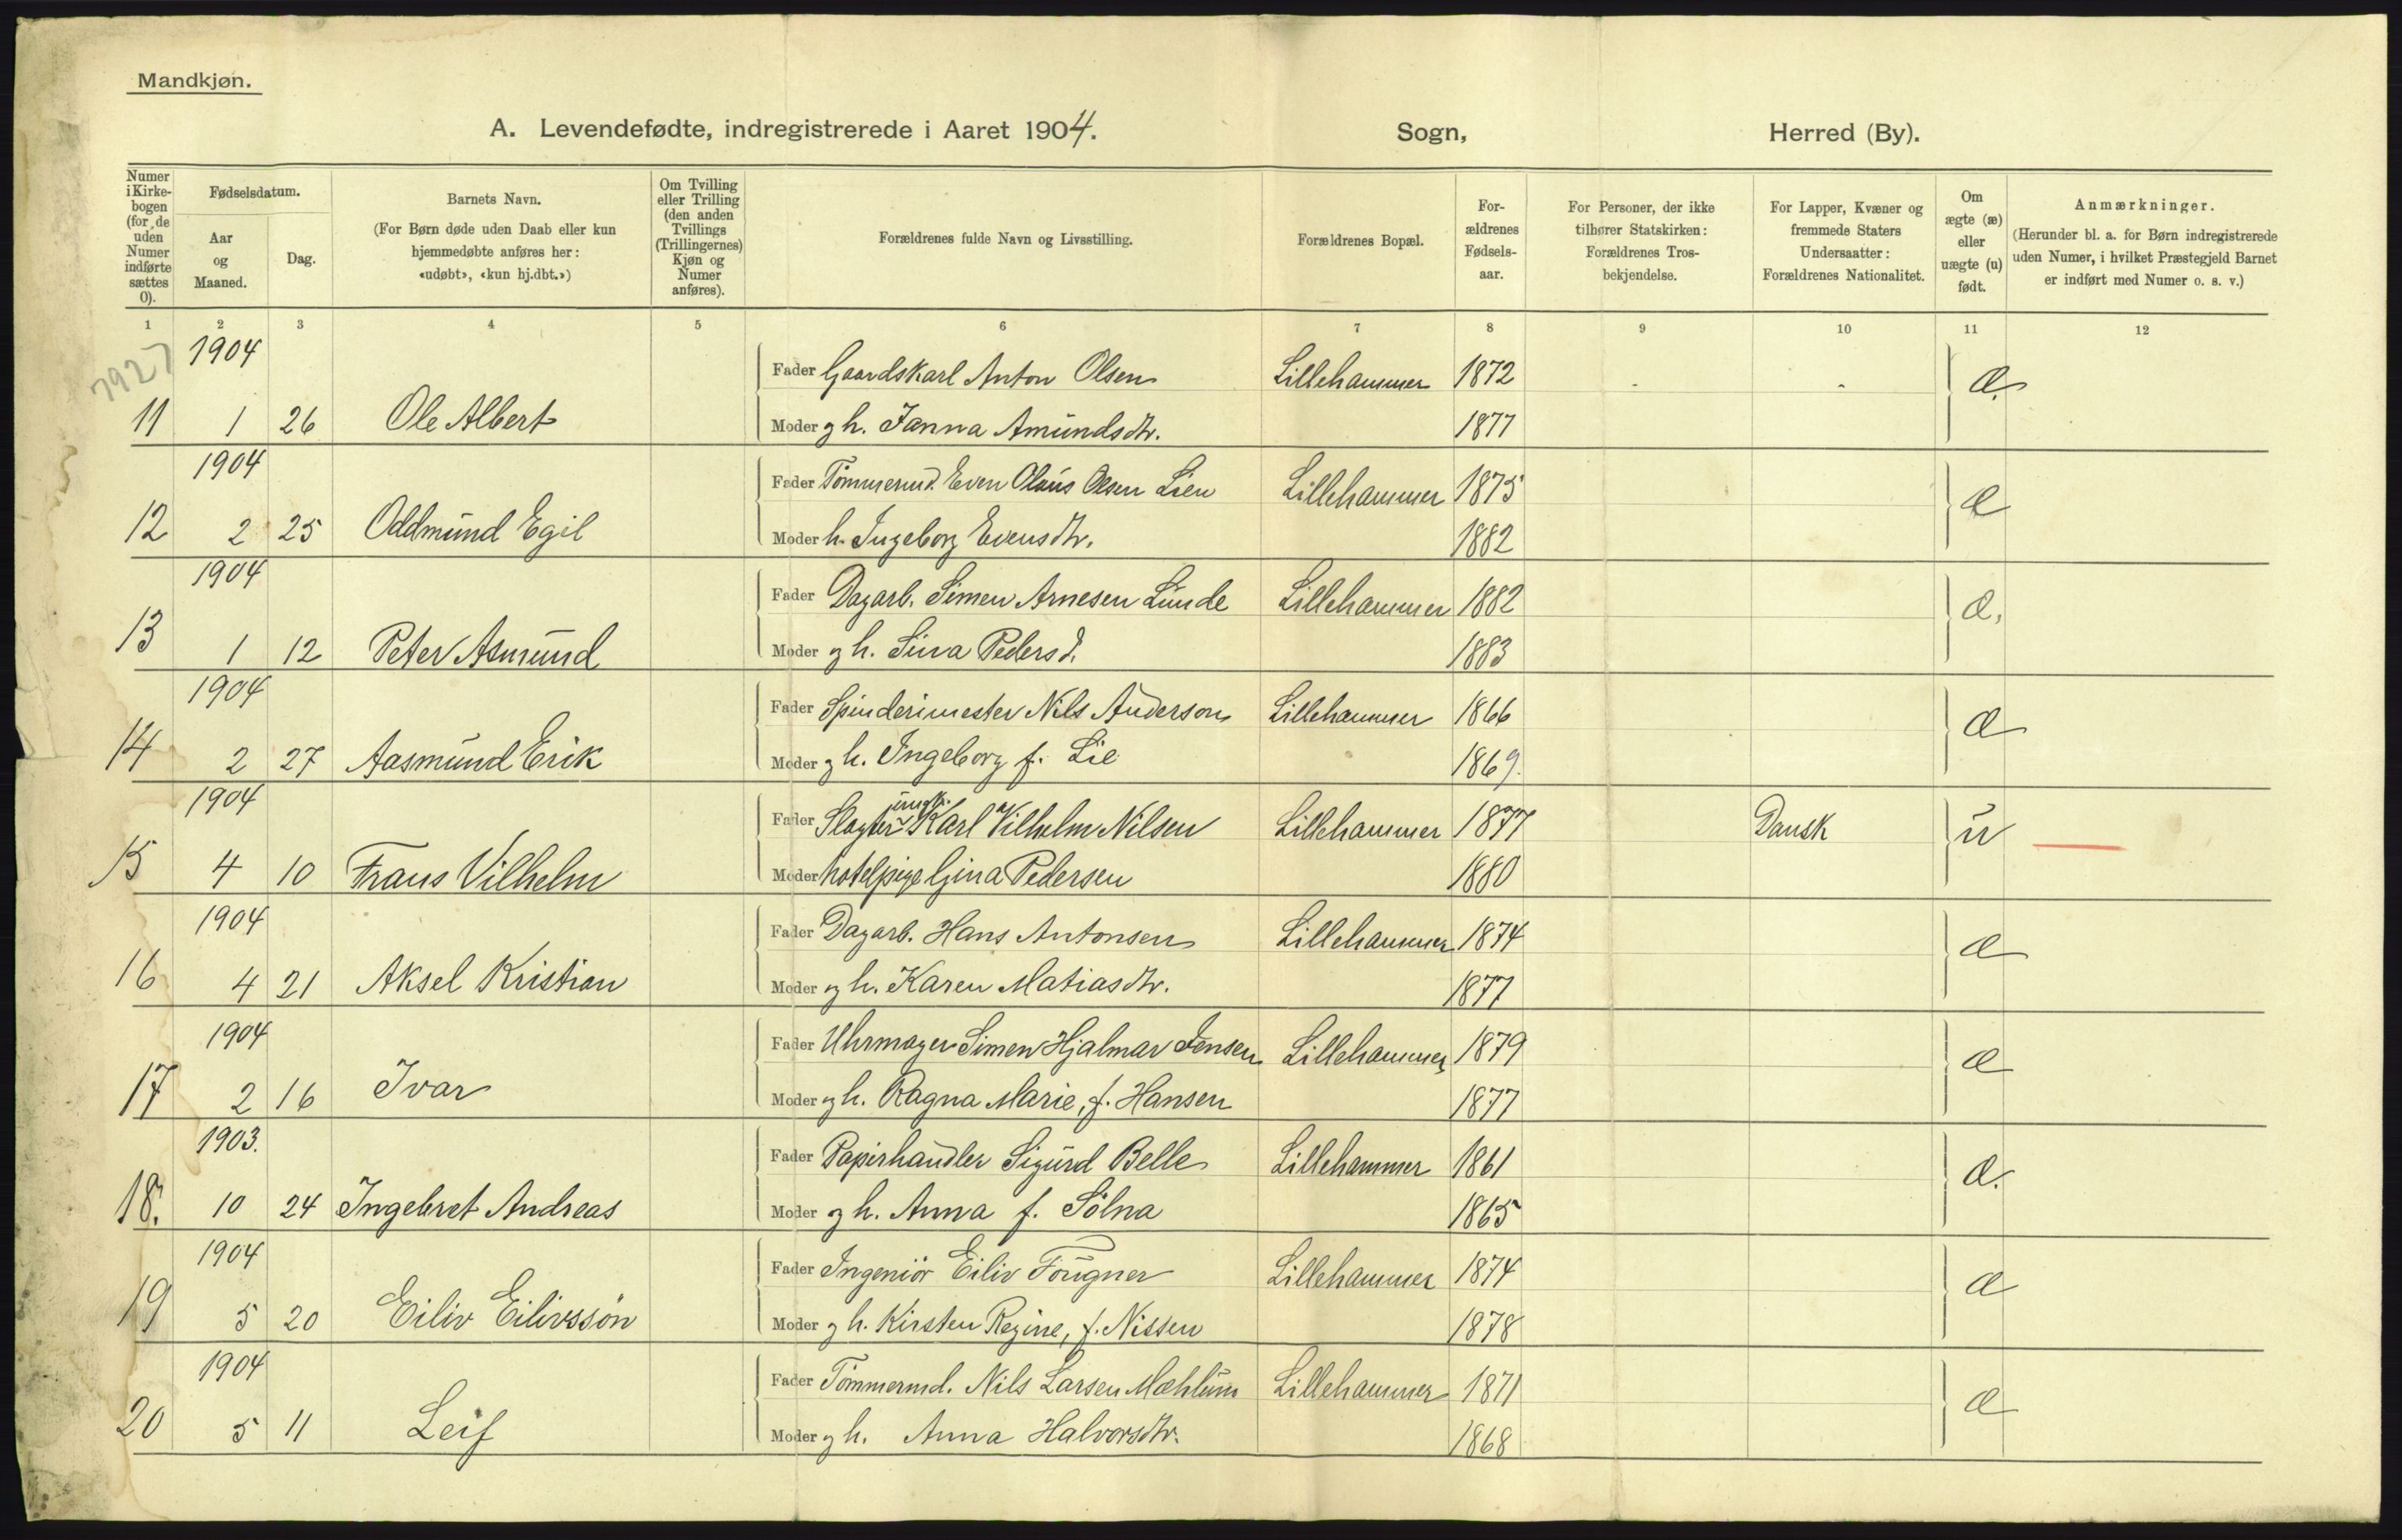 Mandkjøn.
A. Levendefødte, indregistrerede i Aaret 1904. Sogn, Herred (By).
Numer i Kirke-bogen (for de uden Numer indførte sættes 0).
Fødselsdatum.
Aar og Maaned.
Dag.
Barnets Navn.
(For Børn døde uden Daab eller kun hjemmedøbte anføres her: «udøbt», «kun hj.dbt.»)
Om Tvilling eller Trilling (den anden Tvillings (Trillingernes) Kjøn og Numer anføres).
Forældrenes fulde Navn og Livsstilling.
Forældrenes Bopæl.
For-ældrenes Fødsels-aar.
For Personer, der ikke tilhører Statskirken: Forældrenes Tros-bekjendelse.
For Lapper, Kvæner og fremmede Staters Undersaatter: Forældrenes Nationalitet.
Om ægte (æ) eller uægte (u) født.
Anmærkninger.
(Herunder bl. a. for Børn indregistrerede uden Numer, i hvilket Præstegjeld Barnet er indført med Numer o. s. v.)
1 2 3 4 5 6 7 8 9 10 11 12
7927
1904 Fader Gaardskarl Anton Olsen Lillehammer 1872 - - æ.
11 1 26 Ole Albert Moder g h. Janna Amundsdtr. 1877
1904 Fader Tömmermd. Even Olaus Olsen Lien Lillehammer 1875 æ
12 2 25 Oddmund Egil Moder h. Ingeborg Evensdtr. 1882
1904 Fader Dagarb. Simen Arnesen Lunde Lillehammer 1882 æ.
13 1 12 Peter Asmund Moder g h. Sina Pedersd. 1883
1904 Fader Spinderimester Nils Anderson Lillehammer 1866 æ
14 2 27 Aasmund Erik Moder g h. Ingeborg f. Lie 1869.
1904 Fader Slagter ungk. Karl Vilhelm Nilsen Lillehammer 1877 Dansk u
15 4 10 Frans Vilhelm Moder hotelpige Gina Pedersen 1880
1904 Fader Dagarb. Hans Antonsen Lillehammer 1874 æ
16 4 21 Aksel Kristian Moder g h. Karen Matiasdtr. 1877
1904 Fader Uhrmager Simen Hjalmar Jensen Lillehammer 1879 æ
17 2 16 Ivar Moder g h. Ragna Marie, f. Hansen 1877
1903. Fader Papirhandler Sigurd Belle Lillehammer 1861 æ.
18. 10 24 Ingebret Andreas Moder g h. Anna f. Sölna 1865
1904 Fader Ingeniör Eiliv Fougner Lillehammer 1874 æ
19 5 20 Eiliv Eilivssön Moder g h. Kirsten Regine, f. Nissen 1878
1904 Fader Tömmermd. Nils Larsen Mæhlum Lillehammer 1871 æ
20 5 11 Leif Moder g h. Anna Halvorsdtr. 1868